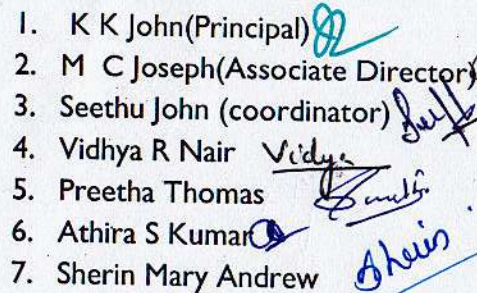 1. K K John(Principal)
2. M C Joseph(Associate Director)
3. Seethu John (coordinator)
4. Vidhya R Nair Vidya
5. Preetha Thomas
6. Athira S Kumar
7. Sherin Mary Andrew Sherin